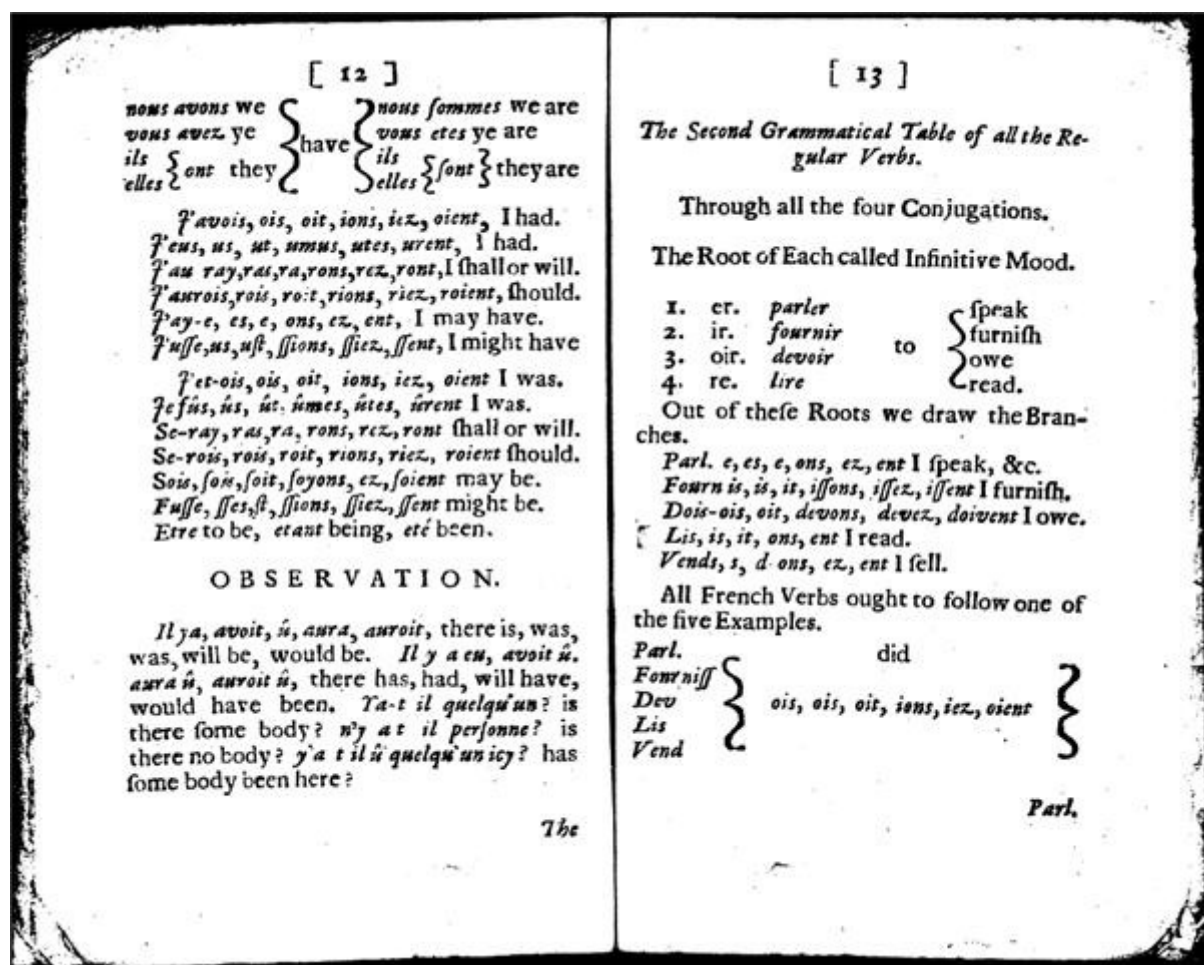 [ 12 ]
nous avons we } have { nous ſommes we are
vous avez ye vous etes ye are
ils elles } ont they ils elles } ſont } they are
J'avois, ois, oit, ions, iez, oient, I had.
J'eus, us, ut, umus, utes, urent, I had.
J'au ray, ras, ra, rons, rez, ront, I ſhall or will.
J'aurois, rois, roit, rions, riez, roient, ſhould.
J'ay-e, es, e, ons, ez, ent, I may have.
J'uſſe, us, uſt, ſſions, ſſiez, ſſent, I might have
J'et-ois, ois, oit, ions, iez, oient I was.
Je fûs, ûs, ût, ûmes, ûtes, ûrent I was.
Se-ray, ras, ra, rons, rez, ront ſhall or will.
Se-rois, rois, roit, rions, riez, roient ſhould.
Sois, ſois, ſoit, ſoyons, ez, ſoient may be.
Fuſſe, ſſes, ſt, ſſions, ſſiez, ſſent might be.
Etre to be, etant being, eté been.
OBSERVATION.
Il ya, avoit, û, aura, auroit, there is, was,
was, will be, would be. Il y a eu, avoit û.
aura û, auroit û, there has, had, will have,
would have been. Ya-t il quelqu'un? is
there ſome body? n'y a t il perſonne? is
there no body? y'a t il û quelqu'un icy? has
ſome body been here?
The
[ 13 ]
The Second Grammatical Table of all the Re-
gular Verbs.
Through all the four Conjugations.
The Root of Each called Infinitive Mood.
1. er. parler to { ſpeak
2. ir. fournir furniſh
3. oir. devoir owe
4. re. lire read.
Out of theſe Roots we draw the Bran-
ches.
Parl. e, es, e, ons, ez, ent I ſpeak, &c.
Fourn is, is, it, iſſons, iſſez, iſſent I furniſh.
Dois-ois, oit, devons, devez, doivent I owe.
Lis, is, it, ons, ent I read.
Vends, s, d ons, ez, ent I ſell.
All French Verbs ought to follow one of
the five Examples.
Parl. did
Fourniſſ
Dev } ois, ois, oit, ions, iez, oient }
Lis
Vend
Parl.